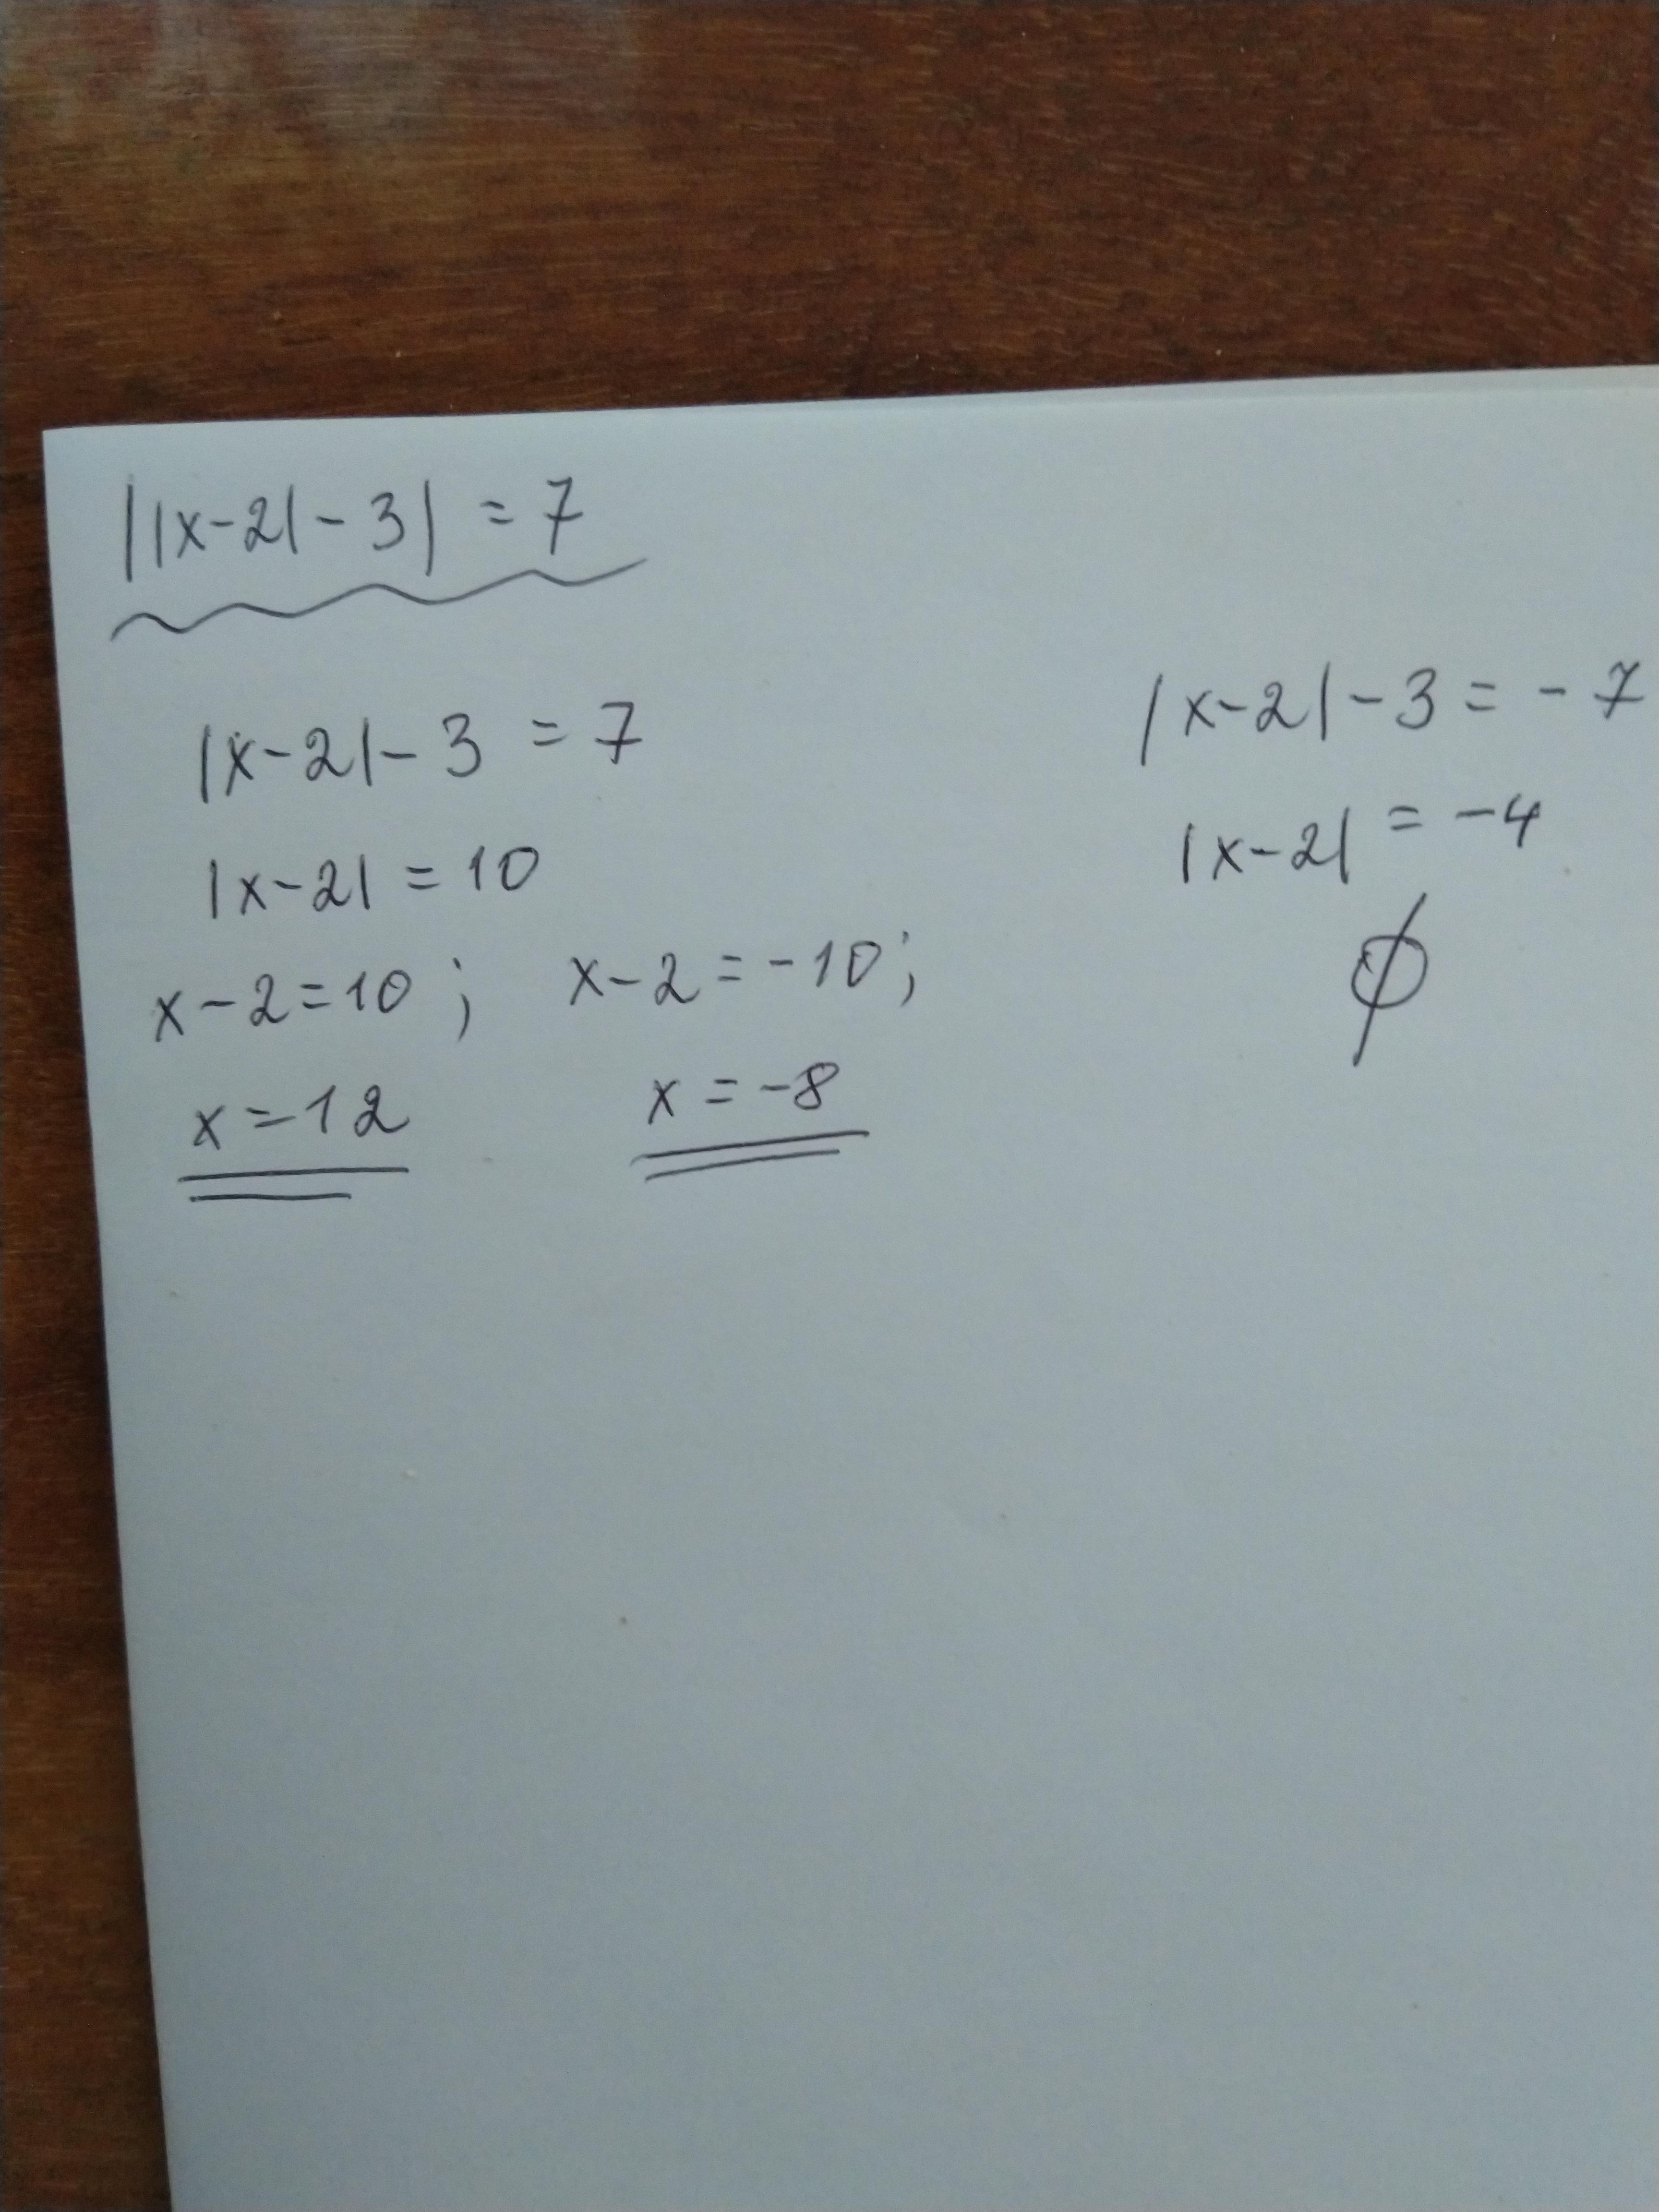 ||x-2|-3| = 7
|x-2|-3 = 7
|x-2| = 10
x-2=10; x-2=-10;
x=12 x=-8
|x-2|-3=-7
|x-2|=-4
∅